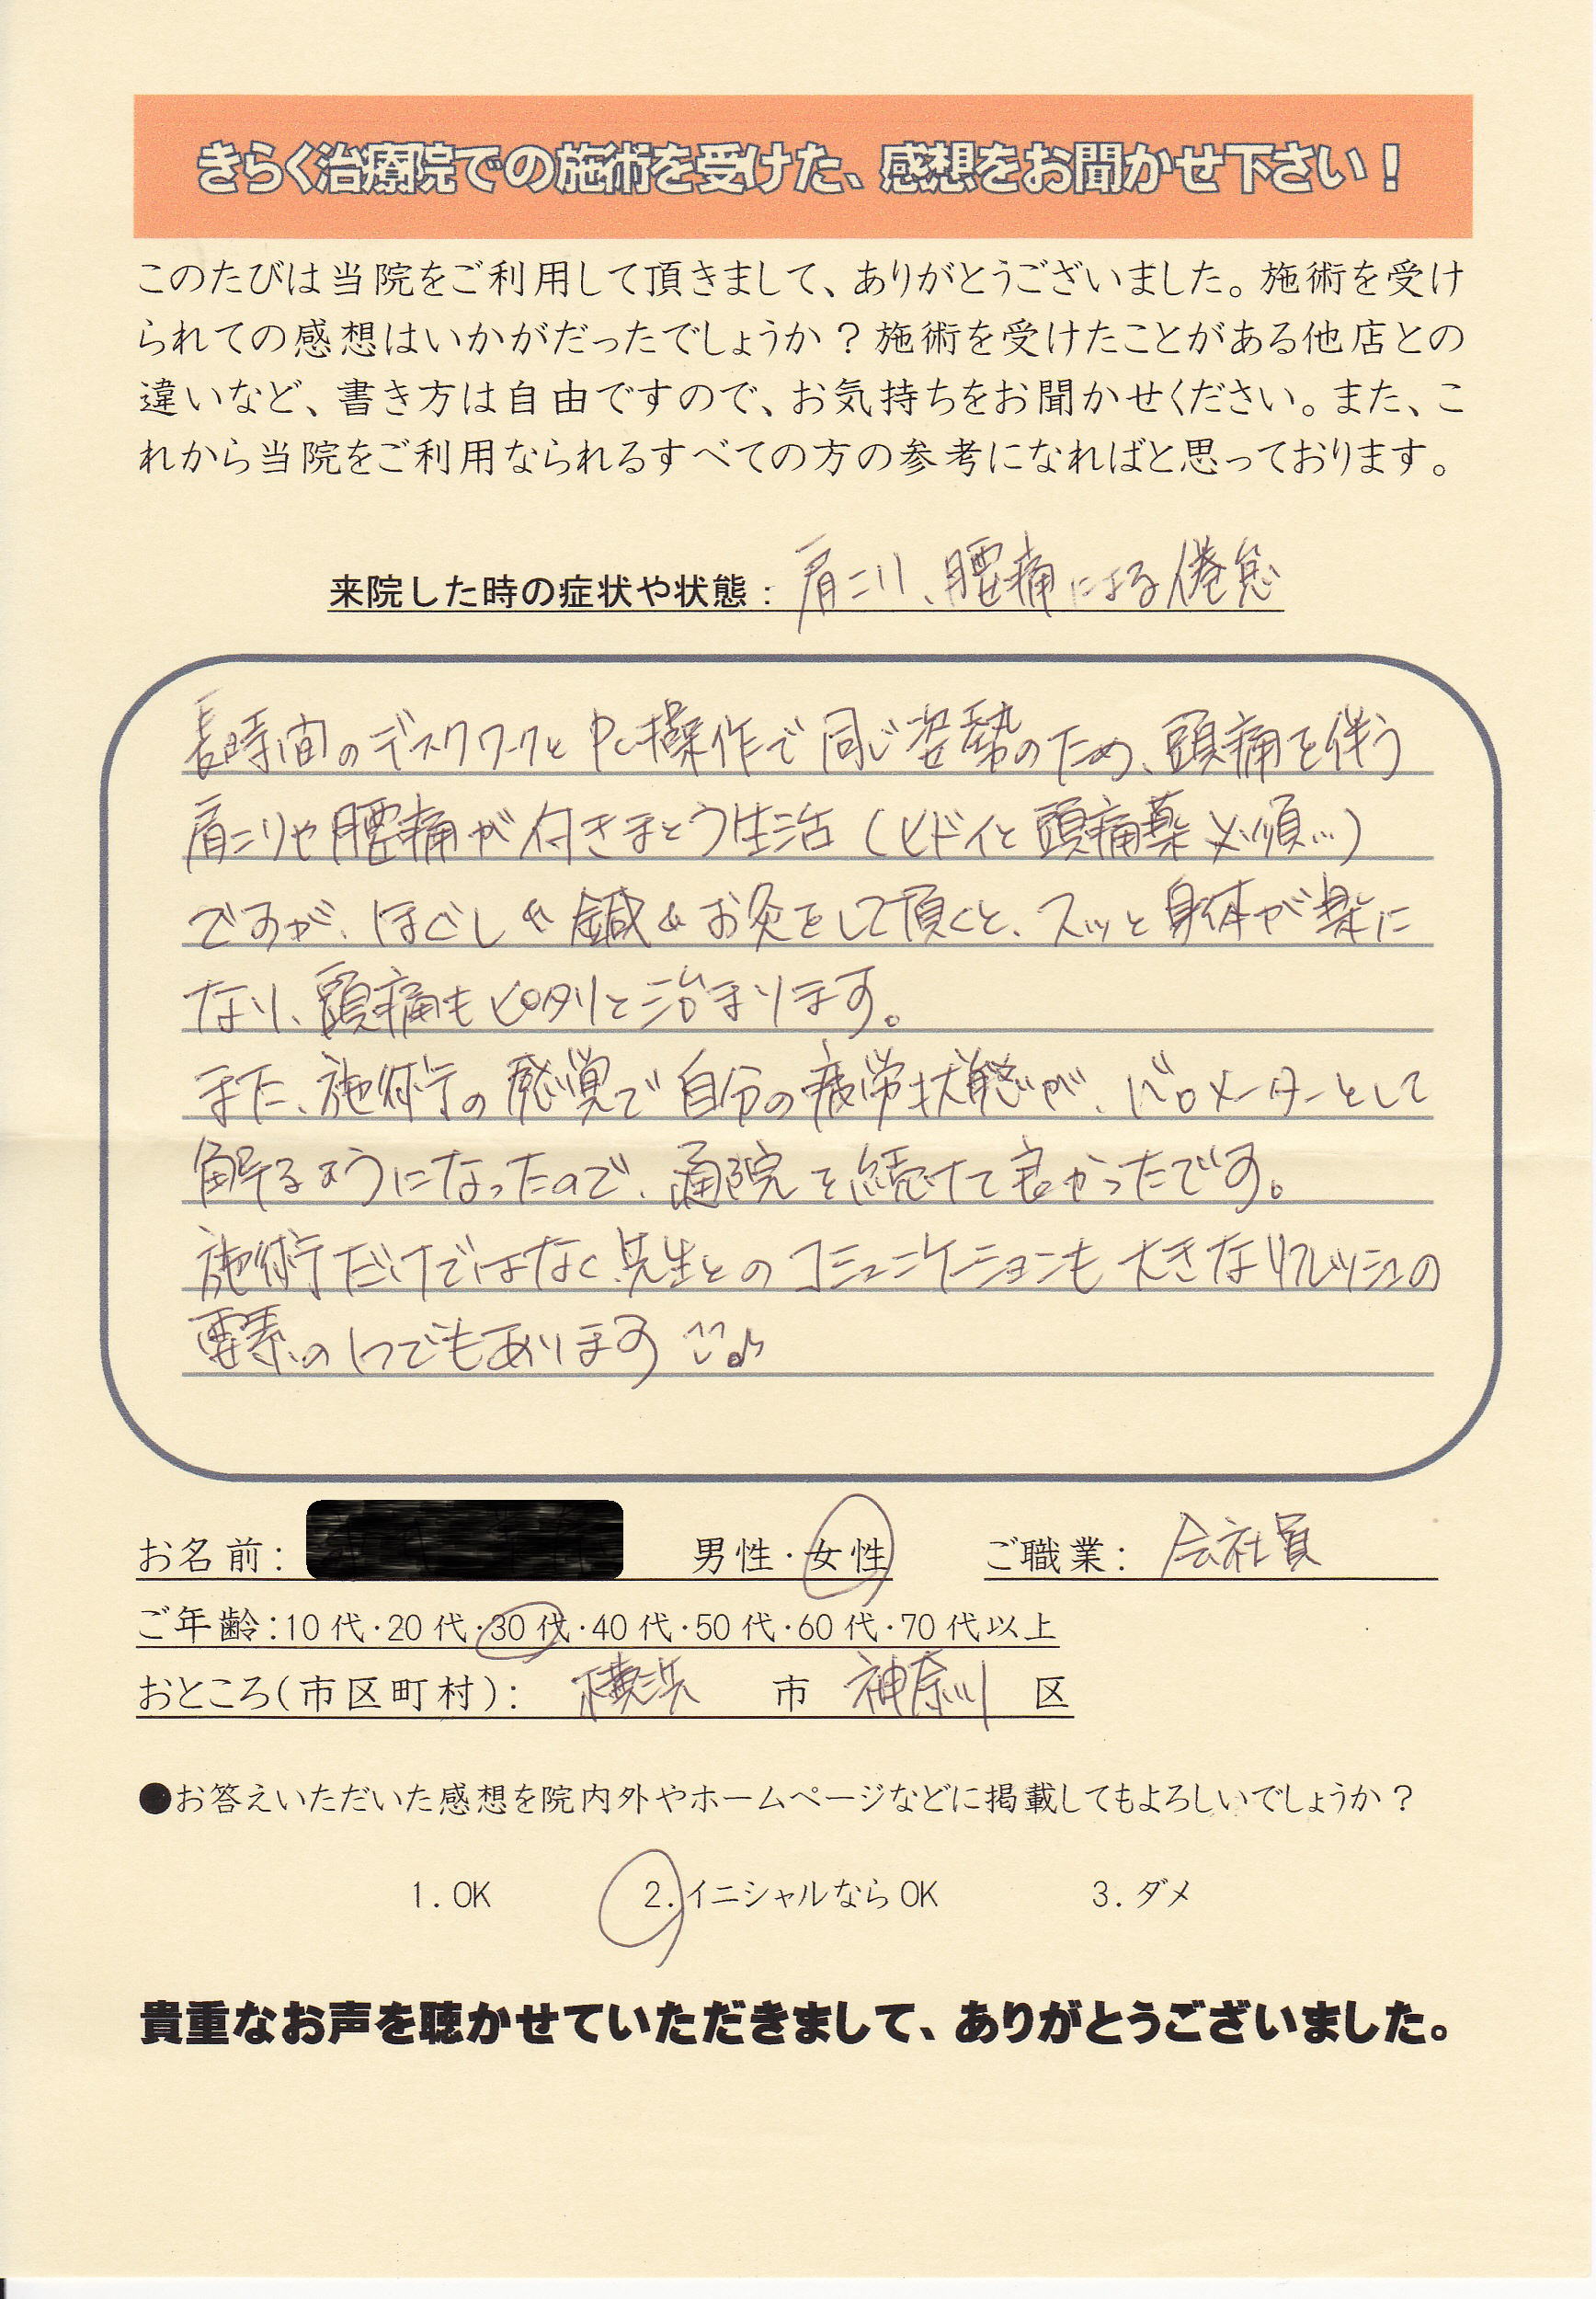 きらく治療院での施術を受けた、感想をお聞かせ下さい！
このたびは当院をご利用して頂きまして、ありがとうございました。施術を受け
られての感想はいかがだったでしょうか？施術を受けたことがある他店との
違いなど、書き方は自由ですので、お気持ちをお聞かせください。また、こ
れから当院をご利用なられるすべての方の参考になればと思っております。
来院した時の症状や状態：肩こり、腰痛による倦怠
長時間のデスクワークとPC操作で同じ姿勢のため、頭痛を伴う
肩こりや腰痛が付きまとう生活（ヒドイと頭痛薬必須…）
ですが、ほぐしや鍼＆お灸をして頂くと、スッと身体が楽に
なり、頭痛もピタリと治まります。
また、施術の感覚で自分の疲労状態が、バロメーターとして
解るようになったので、通院を続けて良かったです。
施術だけではなく先生とのコミュニケーションも大きなリフレッシュの
要素の1つでもあります^^♪
お名前： 男性・女性 ご職業：会社員
ご年齢：10代・20代・30代・40代・50代・60代・70代以上
おところ（市区町村）： 横浜 市 神奈川 区
●お答えいただいた感想を院内外やホームページなどに掲載してもよろしいでしょうか？
1．OK 2．イニシャルならOK 3．ダメ
貴重なお声を聴かせていただきまして、ありがとうございました。